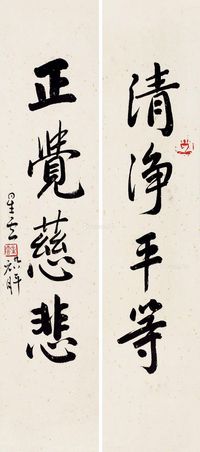 清净平等
正覺慈悲
星雲